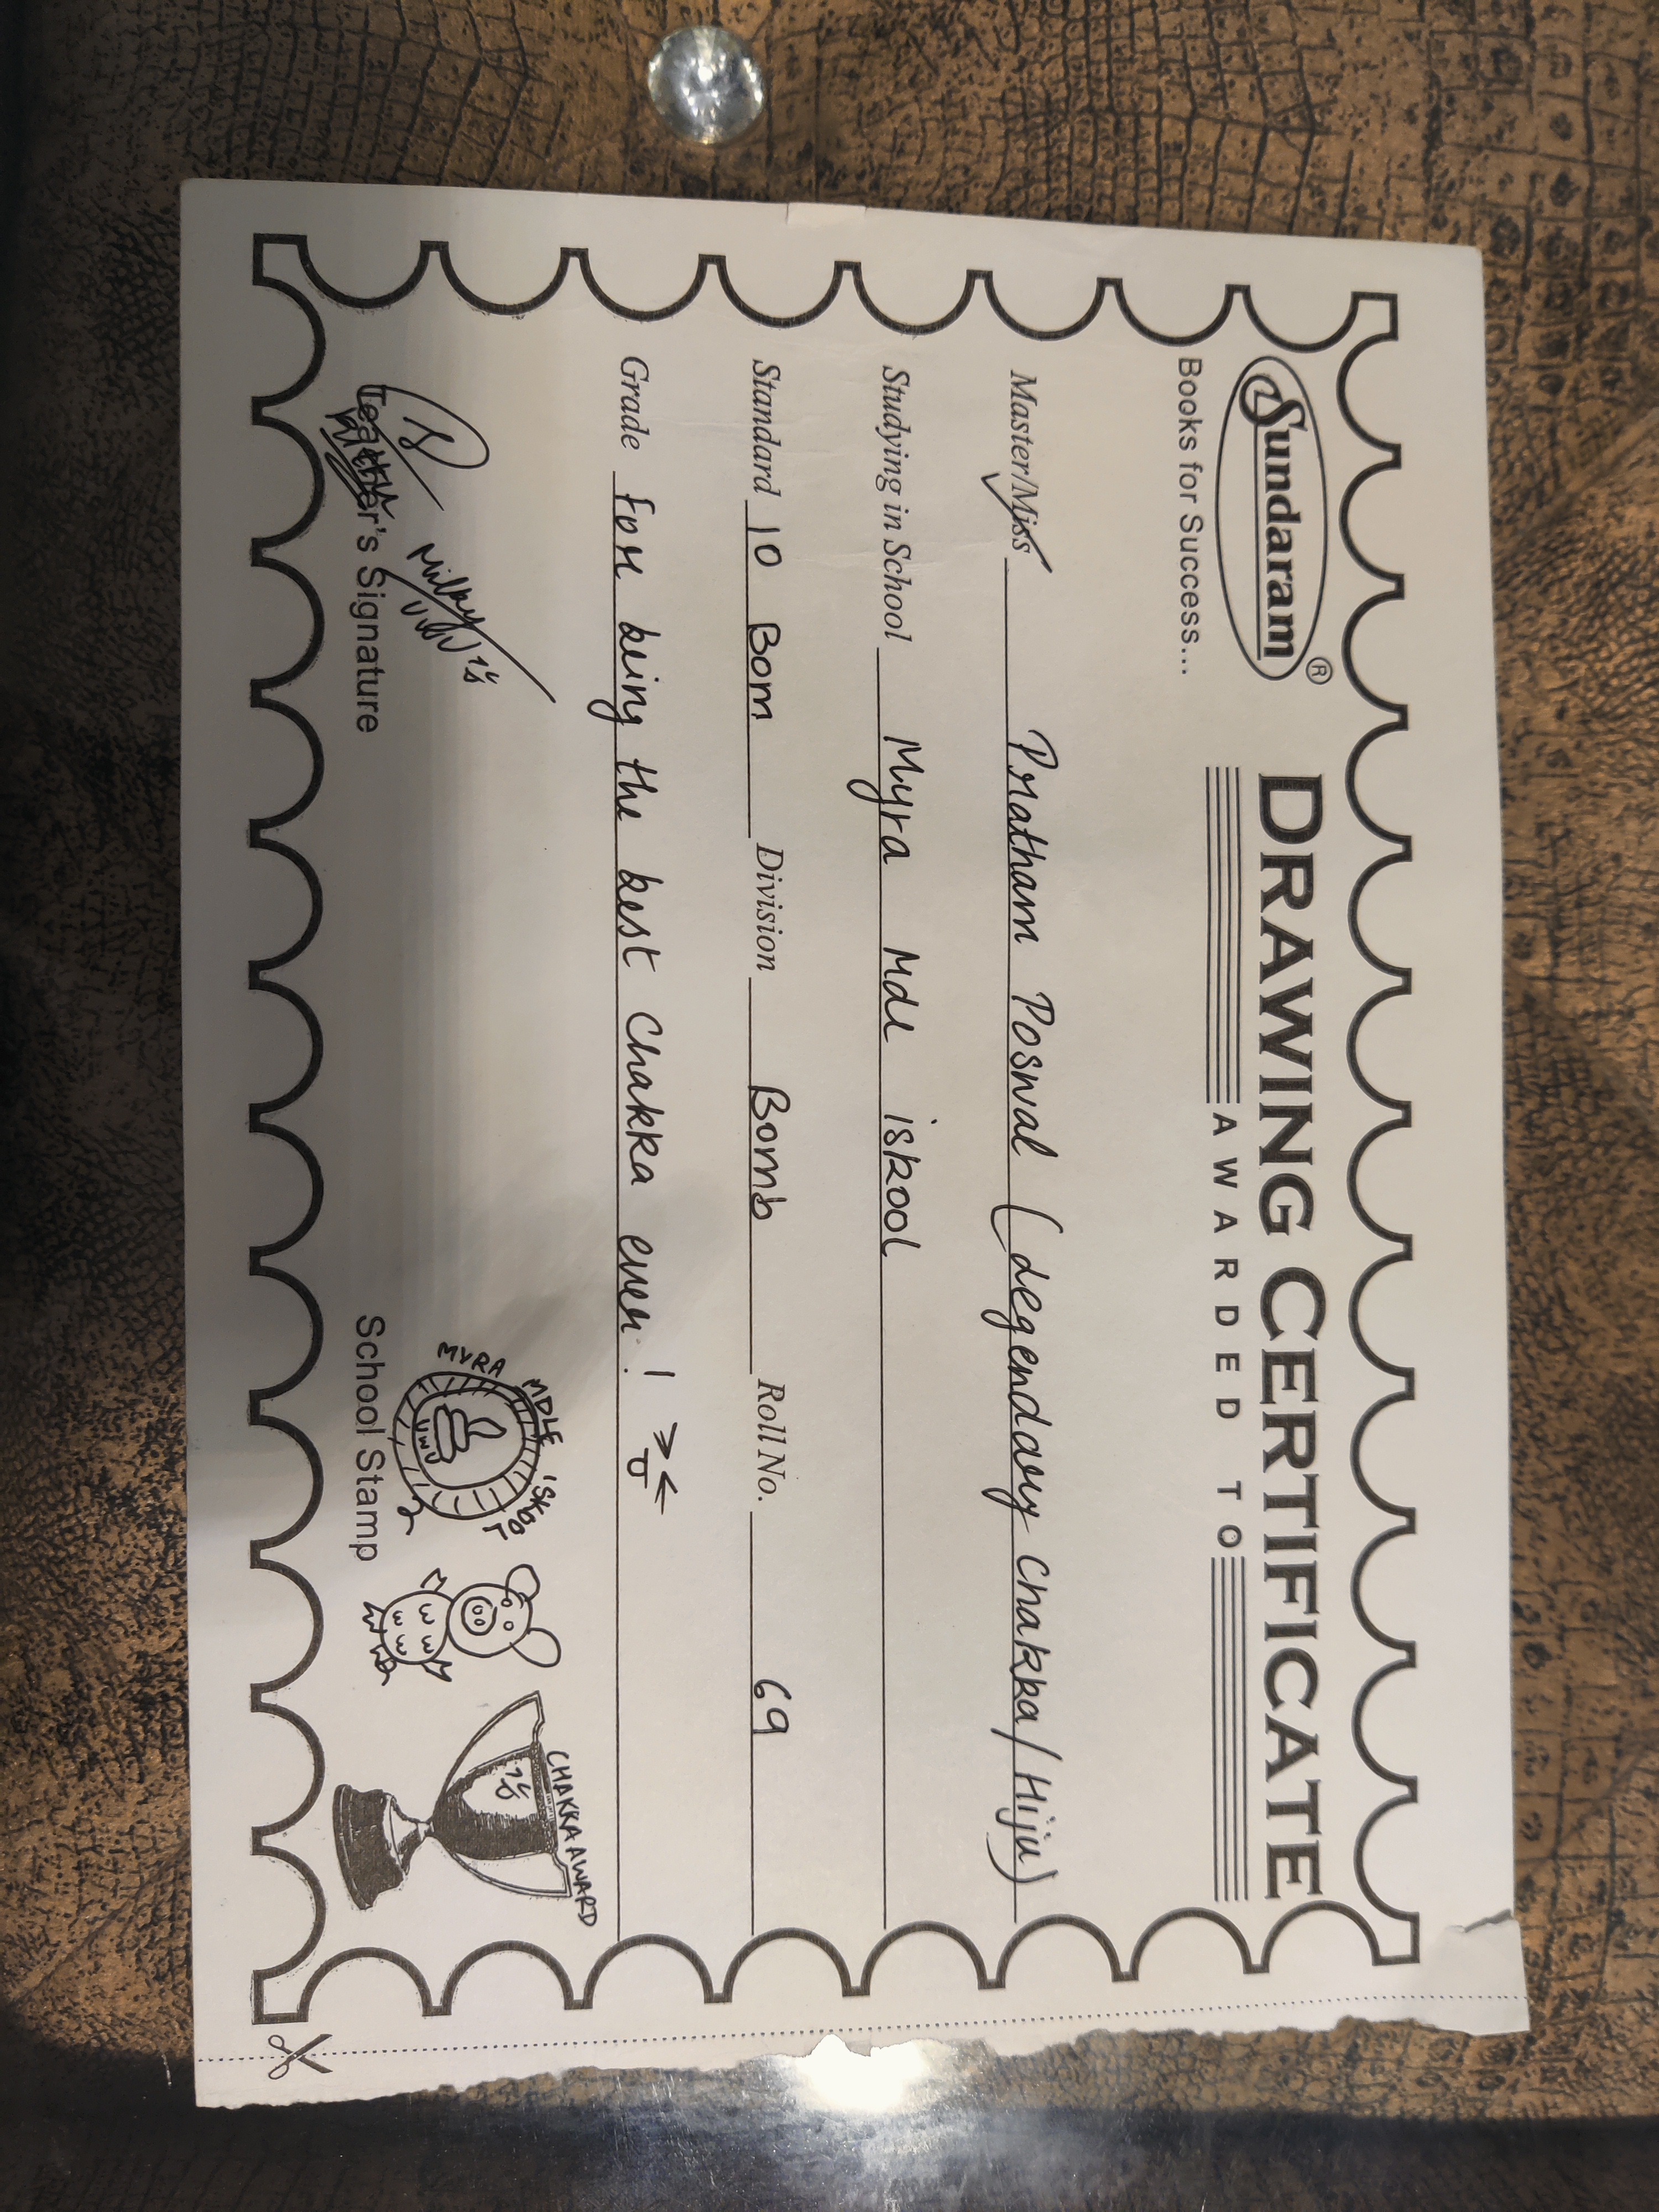 Sundaram®
Books for Success...
DRAWING CERTIFICATE
AWARDED TO
Master/Miss Pratham Poswal (degendary Chakka/Hiju)
Studying in School Myra Mde iskool
Standard 10 Bom Division Bomb Roll No. 69
Grade For being the best Chakka ever!
Milky
Teacher's Signature
MYRA MDLE ISKOOL
UWU
School Stamp
CHAKKA AWARD